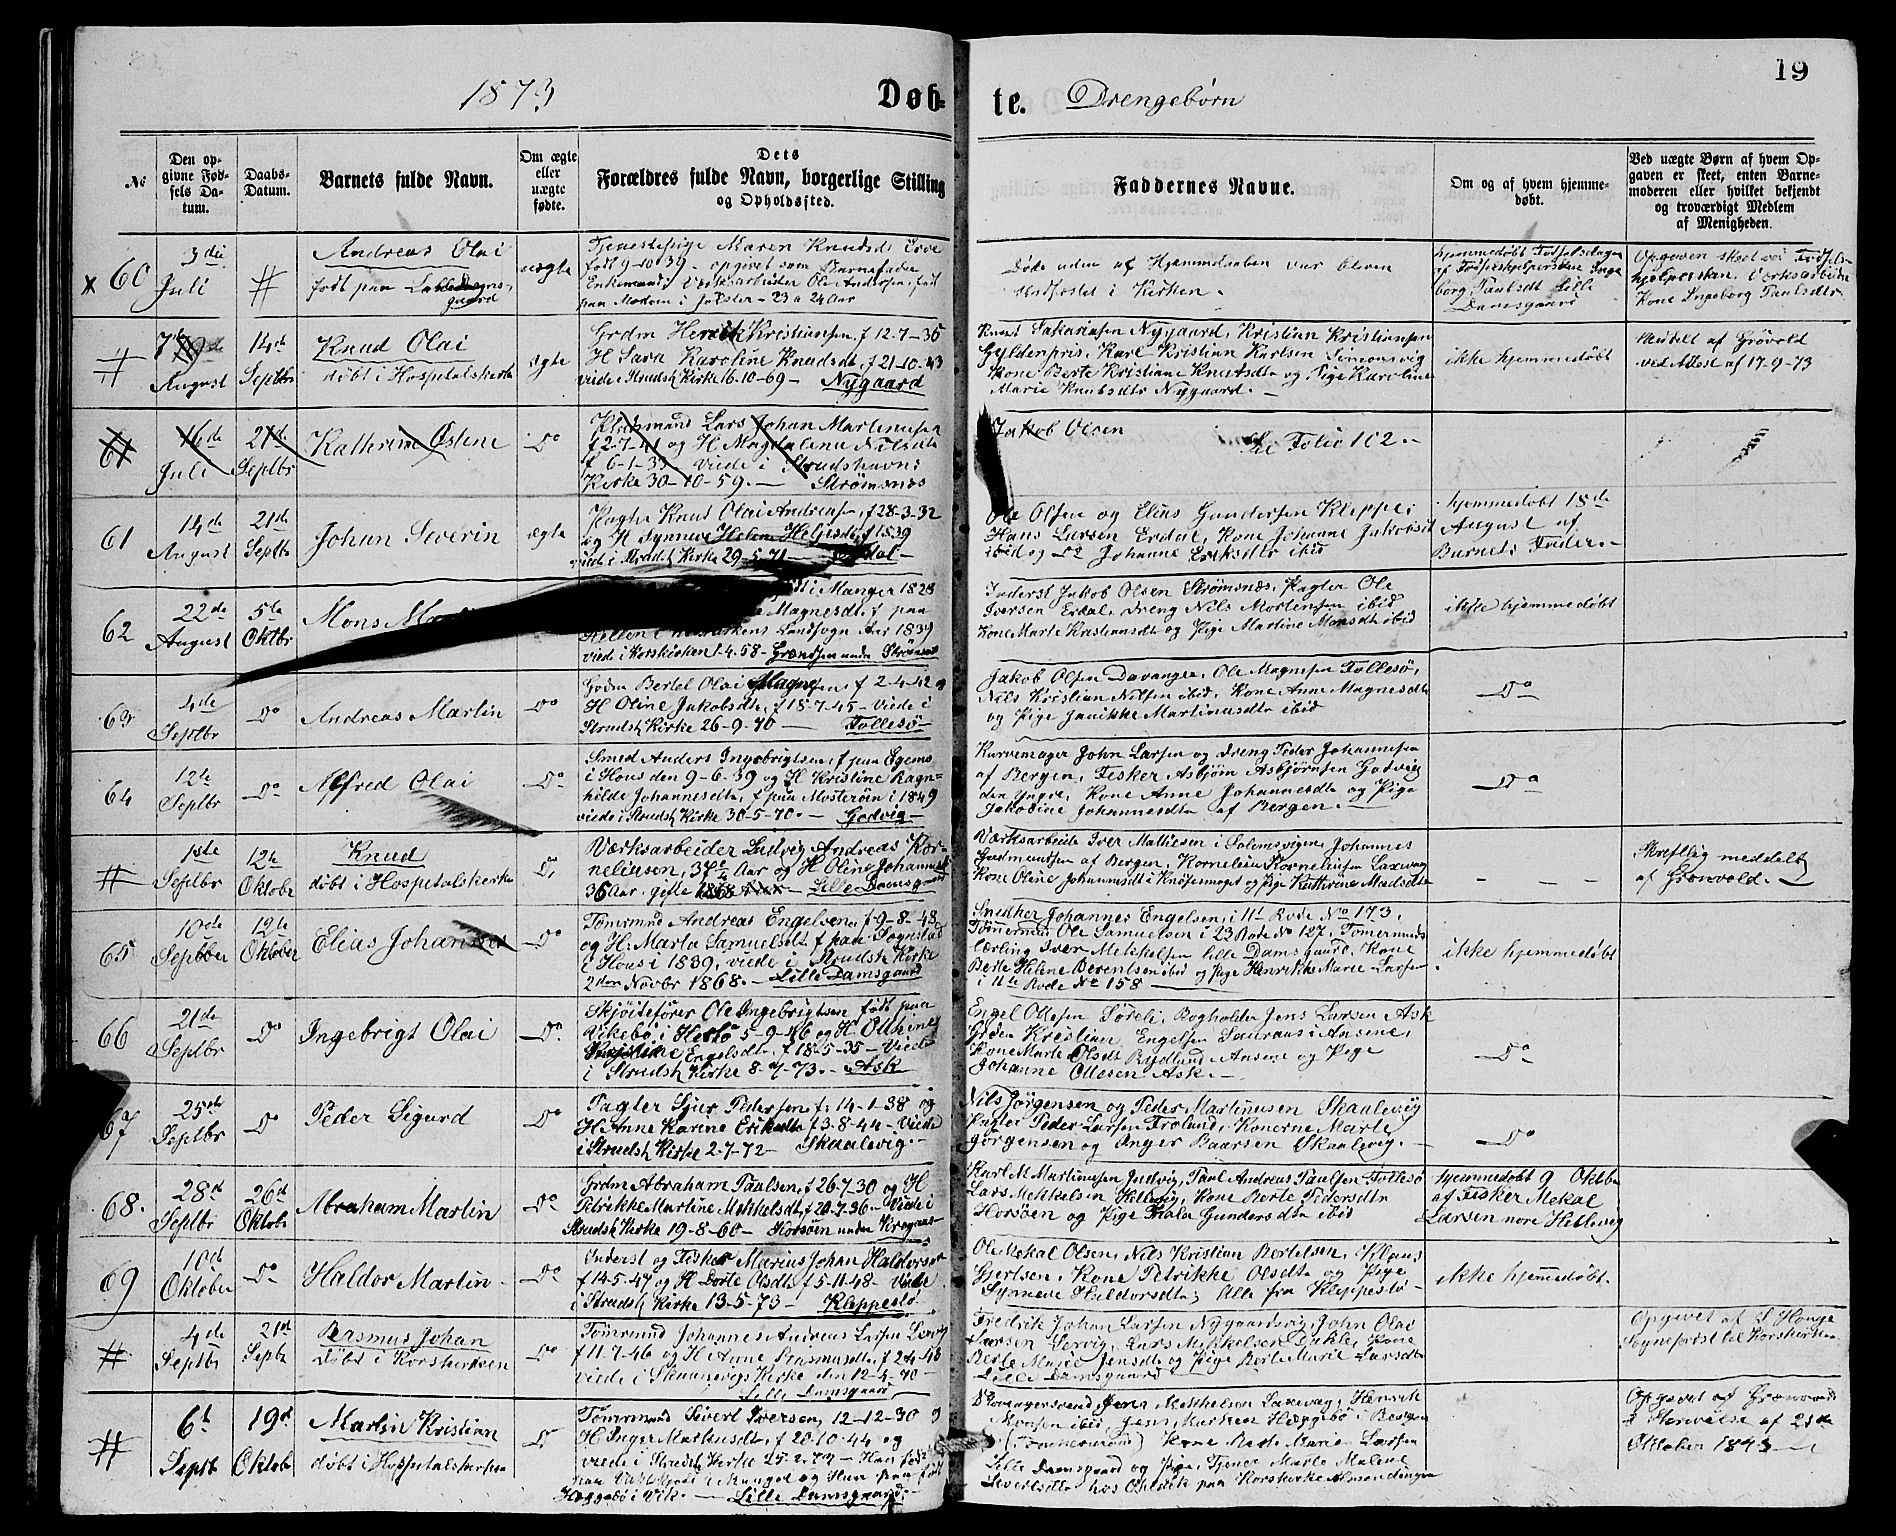 19
1873
Døb-
te.
Drengebørn
№
Den op-
givne Fød-
sels Da-
tum.
Daabs-
Datum.
Barnets fulde Navn.
Om ægte
eller
uægte
fødte.
Dets
Forældres fulde Navn, borgerlige Stilling
og Opholdssted.
Faddernes Navne.
Om og af hvem hjemme-
døbt.
Ved uægte Børn af hvem Op-
gaven er skeet, enten Barne-
moderen eller hvilket bekjendt
og troværdigt Medlem
af Menigheden.
x 60
3die
Juli
#
Andreas Olai
født paa
gaard
uægte
Tjenestepige Maren Knudsdt
født 9-10-39 - opgivet som Barnefader
Enkemand, Værksarbeider Ole Andersen, født
paa i Jølster - 23 a 24 Aar
Døde uden af Hjemmedaaben var bleven
stadfæstet i Kirken.
hjemmedøbt Fødselsdagen
af Fødselshjelpersken Inge
borg Paulsdt Lille
Damsgaard
Opgaven skeet ved Fødsels-
hjelpersken, Værksarbeider
Kone Ingeborg Paulsdtr
#
August
14de
Septbr
Knud Olai
døbt i Hospitalskirke
ægte
Grdm Henrik Kristiansen, f 12-7-35
H Sara Karoline Knudsdt, f 21-10-43
viede i Strudsh Kirke 16-10-69 - Nygaard
Knut Sakariasen Nygaard, Kristian Kristiansen
Gyldenpris, Karl Kristian Karlsen Simonsvig
Kone Berte Kristiane Knutsdt og Pige Karoline
Marie Knutsdtr Nygaard. -
ikke hjemmedøbt
Meddelt af Grøvold
ved Attest af 17-9-73
61
16de
Juli
21de
Septbr
Kathrine Østene
Do
Pladsmand Lars Johan Martinusen
f 2-7-41 og H Magdalena Nilsdt
f 6-1-33 viede i Strudshavns
Kirke 30-10-59. - Strømsnæs
Jakob Olsen
See Folio 102. -
61
14de
August
21de
Septbr
Johan Severin
ægte
Pagter Knut Olai Andreasen, f 28-3-32
og H Synneve Helene Heljesdt, f 1839
viede i Strudsh Kirke 29-5-71
Ole Olsen og Elias Gundersen Kleppe,
Hans Larsen Erdal, Kone Johanne Jakobsdt
ibid og Do Johanne Eriksdtr ibid
hjemmedøbt 18de
August af
Barnets Fader. -
62
22de
August
5te
Oktbr
Mons
i Manger 1828
Magnesdt, f paa
Landsogn Aar 1839
viede i Korskirken 1-4-58 - Grændsen under Strømsnæs
Inderst Jakob Olsen Strømsnæs, Pagter Ole
Iversen Erdal, Dreng Nils Mortensen ibid
Kone Marte Kristiansdt og Pige Martine Monsdt ibid
ikke hjemmedøbt
63
4de
Septbr
Do
Andreas Martin
Do
Grdm Bertel Olai Magnesen, f 2-4-42 og
H Oline Jakobsdt, f 18-7-45 - Viede i
Strudsh Kirke 26-9-70 - Follesø -
Jakob Olsen Davanger, Ole Magnesen Follesø,
Nils Kristian Nilsen ibid, Kone Anne Magnesdt
og Pige Janikke Martinusdt ibid
Do
64
12te
Septbr
Do
Alfred Olai
Do
Smed Anders Ingebrigtsen, f paa
i Hous den 9-6-39 og H Kristine Ragn-
hilde Johannesdt, f paa Mosterøen i 1849
viede i Strudsh Kirke 30-5-70. - Godvig -
Kurvemager John Larsen og Dreng Peder Johannesen
af Bergen, Fisker Asbjørn Asbjørnsen Godvig
den Yngre, Kone Anne Johannesdt og Pige
Jakobine Johannesdt af Bergen. -
Do
#
1ste
Septbr
12te
Oktober
Knud
døbt i Hospitalskirke
Do
Værksarbeider Ludvig Andreas Kor-
neliusen, 37 Aar og H Oline Johannesdt
36 Aar, gifte 1868 - Lille Damsgaard
Værksarbeider Iver Mathiesen i Solemsvigen, Johannes
Gudmundsen af Bergen, Kornelius Korneliusen Laxevag
Kone Oline Johannesdt i Knøsesmoget og Pige Kathrine Madsdt
- - -
Skriftlig meddelt
af Grønvold. -
65
10de
Septber
12te
Oktober
Elias Johannes
Do
Tømrmnd Andreas Engelsen, f 9-8-48
og H. Marta Samuelsdt f paa
i Hous i 1839, viede i Strudsh Kirke
2den Novbr 1868. - Lille Damsgaard
Snedker Johannes Engelsen, i 11te Rode No 173,
Tømmermd Ole Samuelsen i 23 Rode No 127, Tømermnds
lærling Iver Mekkelsen Lille Damsgaard, Kone
Berte Helene Berentsen ibid og Pige Henrikke Marie Larsen
i 11te Rode No 158 -
ikke hjemmedøbt
66
21de
Septbr
Do
Ingebrigt Olai
Do
Skjøitefører Ole Ingebrigtsen født paa
Vikebø i Herlø 5-9-46 og H. Othine
Engelsdt, f 18-5-35 - Viede
i Strudsh Kirke 8-7-73. - Ask
Engel Ollesen Søreli, Bogholder Jens Larsen Ask
Grdm Kristian Engelsen Sauraas i Ansene,
Kone Marte Olsdt Rydland Ansene og Pige
Johanne Ollesen Ask. -
Do
67
25de
Septbr
Do
Peder Sigurd
Do
Pagter Sjur Pedersen, f. 14-1-38 og
H Anne Karine Eriksdt, f 3-8-44 - Viede
i Strudsh Kirke 2-7-72 - Skaalevig. -
Nils Jørgensen og Peder Martinusen Skaalevig
Pagter Peder Larsen Frølund, Konerne Marte
Jørgensen og Inger Baarsen Skaalevig. -
Do
68.
28de
Septbr
26de
Oktobr
Abraham Martin
Do
Grdm Abraham Paulsen, f 26-7-30 og H
Petrikke Martine Mekkelsdt, f 20-7-36 - Viede i
Strudsh Kirke 19-8-60 - Horsøen under
Karl M Martinusen Judvig, Paul Andreas Paulsen Follesø
Lars Mekkelsen Hillevig, Kone Berte Pedersdtr
Horsøen og Pige Gundersdtr ibid
hjemmedøbt 9 Oktbr
af Fisker Mekal
Larsen nore Hillevig
69
10de
Oktober
Do
Haldor Martin -
Do
Inderst og Fisker Marius Johan Haldorsen
f 14-5-47 og H Dorte Olsdt, f 5-11-48 - Viede
i Strudsh Kirke 13-5-73 - Kleppestø
Ole Mekal Olsen, Nils Kristian Bertelsen, Klaus
Gjertsen, Kone Petrikke Olsdt og Pige
Synneve Haldorsdtr; Alle fra Kleppestø -
ikke hjemmedøbt.
#
4de
Septbr
21de
Septbr
Rasmus Johan
døbt i Korskirken
Do
Tømrmnd Johannes Andreas Larsen Lervig
f 11-7-46 og H Anne Rasmusdt, f
viede i Skaanevigs Kirke den 12-4-70 -
Lille Damsgaard
Fredrik Johan Larsen Nygaardsvig, John Olai
Larsen Lervig, Lars Mekkelsen Kone
Berte Marie Jensdt og Pige Berte Marie Larsdt
Lille Damsgaard
Opgivet af S Hauge
Sogneprest til Korskirken
#
6t
Septb
19de
Oktob
Martin Kristian
døbt i Hospitalskirken
Do
Tømrmnd Sivert Iversen, 12-12-30 og
H Inger Martinsdt, f 20-10-44 og
viede i Strudsh Kirke - Han født
paa i Manger og Hun paa født
i Vik. - Lille Damsgaard -
Jens Mekkelsen Laxevag, Henrik
Monsen ibid, Jens i Bergen
(Tømmermænd) Kone Marte Marie Larsen
Lille Damsgaard og Pige, Tjener Marte Malene
Sivertsdt hos paa Korskirke Almendingen
Opgivet af Grønvold
i Skrivelse af 21de
Oktober 1873 -